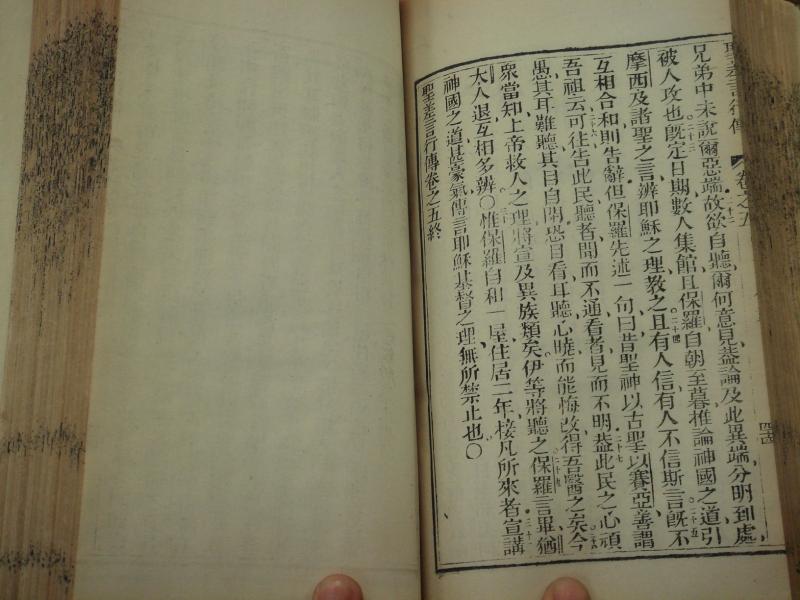 聖差言行傳 卷之五
兄弟中未說爾惡端故欲自聽爾何意見蓋論及此異端分明到處
被人攻也既定日期數人集館且保羅自朝至暮推論神國之道引
摩西及諸聖之言辨耶穌之理教之且有人信有人不信斯言既不
互相合和則告辭但保羅先述一句曰昔聖神以古聖以賽亞善謂
吾祖云可往告此民聽者聞而不通看者見而不明蓋此民之心頑
愚其耳難聽其目自閉恐目看耳聽心曉而能悔改得吾醫之矣今
眾當知上帝救人之理將宣及異族類矣伊等將聽之保羅言畢猶
太人退互相多辨○惟保羅自和一屋住居二年接凡所來者宣講
神國之道以豪氣傳言耶穌基督之理無所禁止也○
聖差言行傳卷之五終